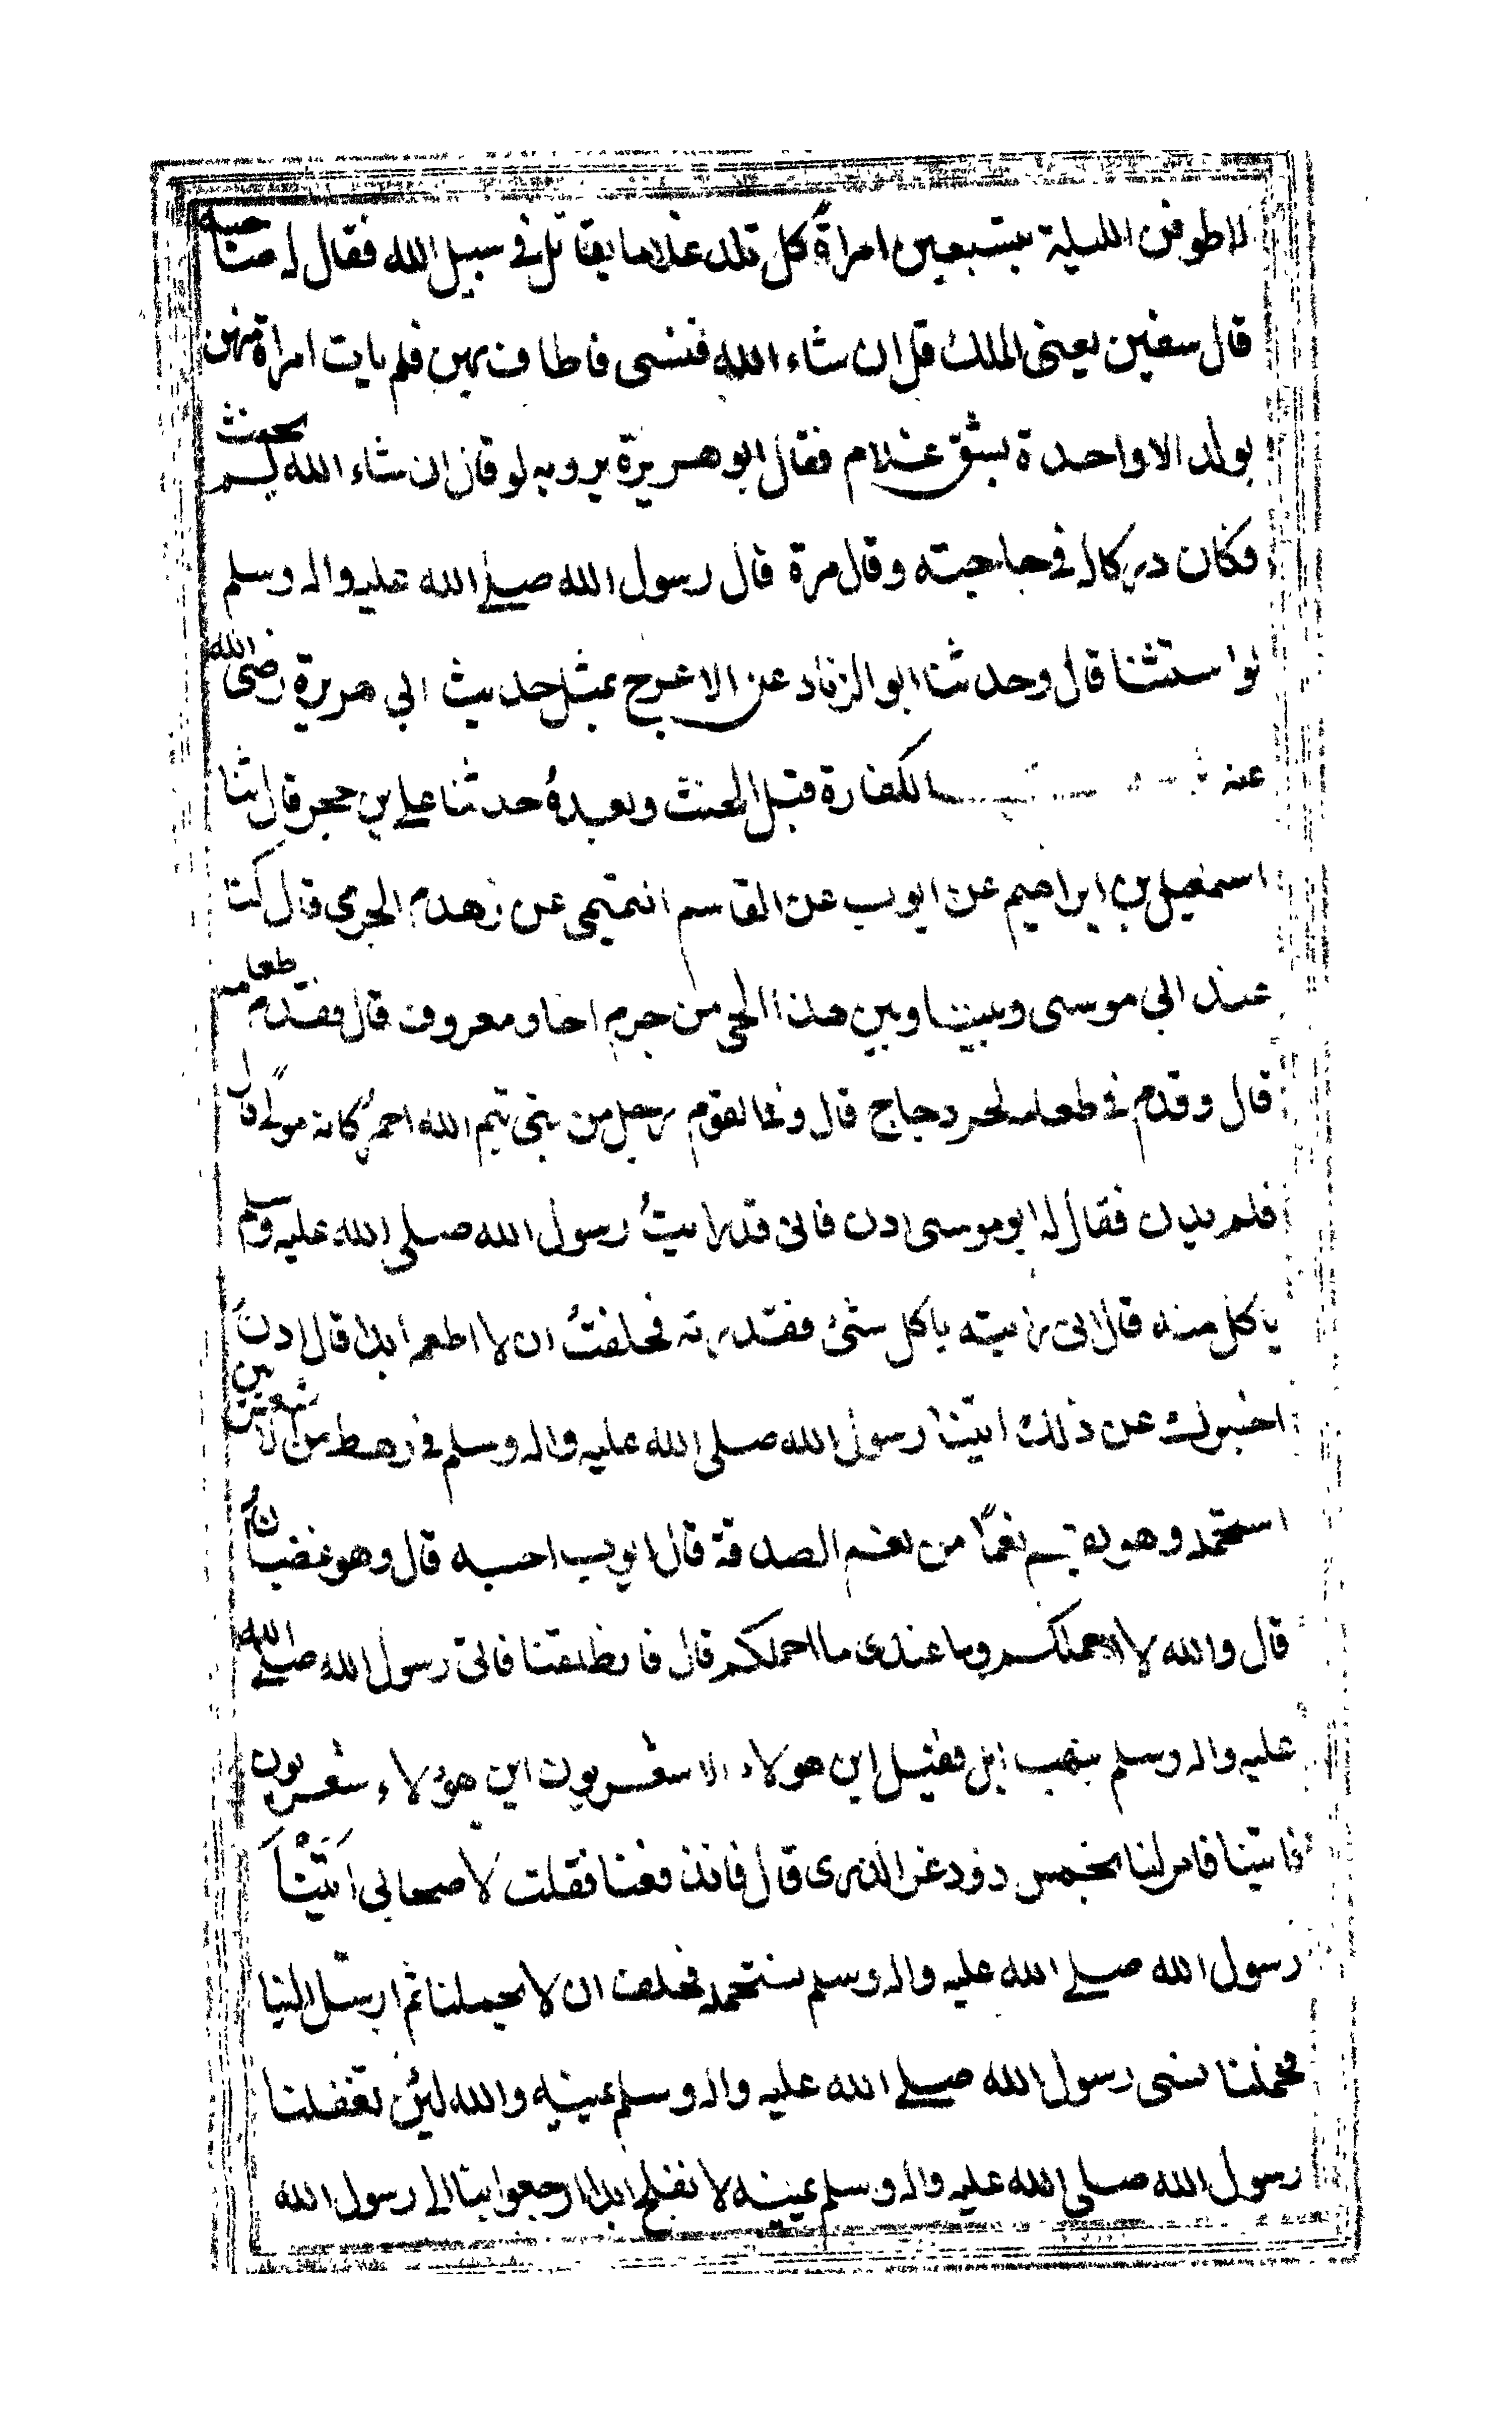 لاطوفن الليلة بتسعين امراة كل تلد غلاما يقاتل في سبيل الله فقال له صاحبه
قال سفين يعنى الملك قل ان شاء الله فنسى فاطاف بهن فلم يات امراة منهن
بولد الا واحدة بشق غلام فقال ابو هريرة يرويه لو قال ان شاء الله لم يحنث
وكان دركا له في حاجته وقال مرة قال رسول الله صلى الله عليه واله وسلم
لو استثنا قال وحدثنا ابو الزناد عن الاعرج بمثل حديث ابي هريرة رضى الله
عنه الكفارة قبل الحنث وبعده حدثنا على بن حجر قال ثنا
اسمعيل بن ابراهيم عن ايوب عن القاسم التميمى عن زهدم الجرمى قال كنا
عند ابي موسى وبيننا وبين هذا الحى من جرم اخا ومعروف قال فقدم طعامه
قال وقدم في طعامه لحم دجاج قال وفى القوم رجل من بنى تيم الله احمر كانه مولى قال
فلم يدن فقال له ابو موسى ادن فانى قد رايت رسول الله صلى الله عليه وسلم
ياكل منه قال انى رايته ياكل شئ فقدرته فحلفت ان لا اطعمه ابدا قال ادن
اخبرك عن ذلك اتينا رسول الله صلى الله عليه واله وسلم في رهط من الاشعريين
استحمله وهو يقسم نعما من نعم الصدقة قال ايوب احسبه قال وهو غضبان
قال والله لا احملكم وما عندى ما احملكم قال فانطلقنا فاتى رسول الله صلى الله
عليه واله وسلم بنهب ابل فقيل اين هولاء الاشعريون اين هؤلاء الاشعريون
فاتينا فامر لنا بخمس ذود غر الذرى قال فاندفعنا فقلت لاصحابي اتينا
رسول الله صلى الله عليه واله وسلم نستحمله فحلف ان لا يحملنا ثم ارسل الينا
فحملنا نسى رسول الله صلى الله عليه واله وسلم يمينه والله لئن تغفلنا
رسول الله صلى الله عليه واله وسلم يمينه لا نفلح ابدا ارجعوا بنا الى رسول الله